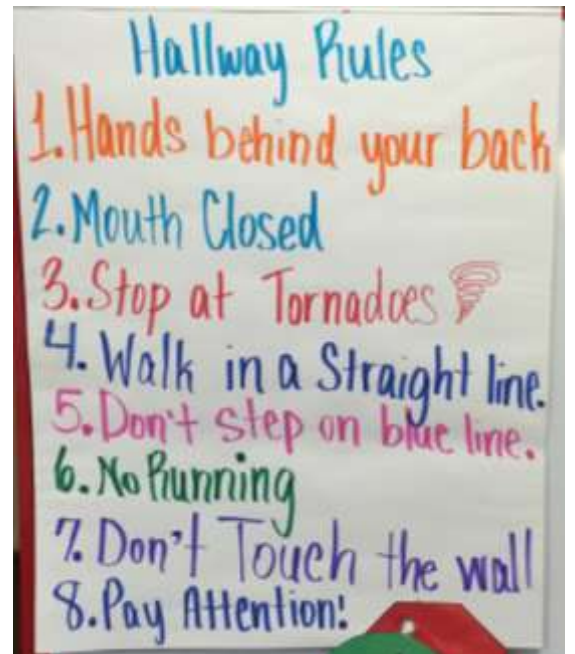 Hallway Rules
1. Hands behind your back
2. Mouth Closed
3. Stop at Tornadoes
4. Walk in a Straight line.
5. Don't step on blue line.
6. No Running
7. Don't Touch the wall
8. Pay Attention!